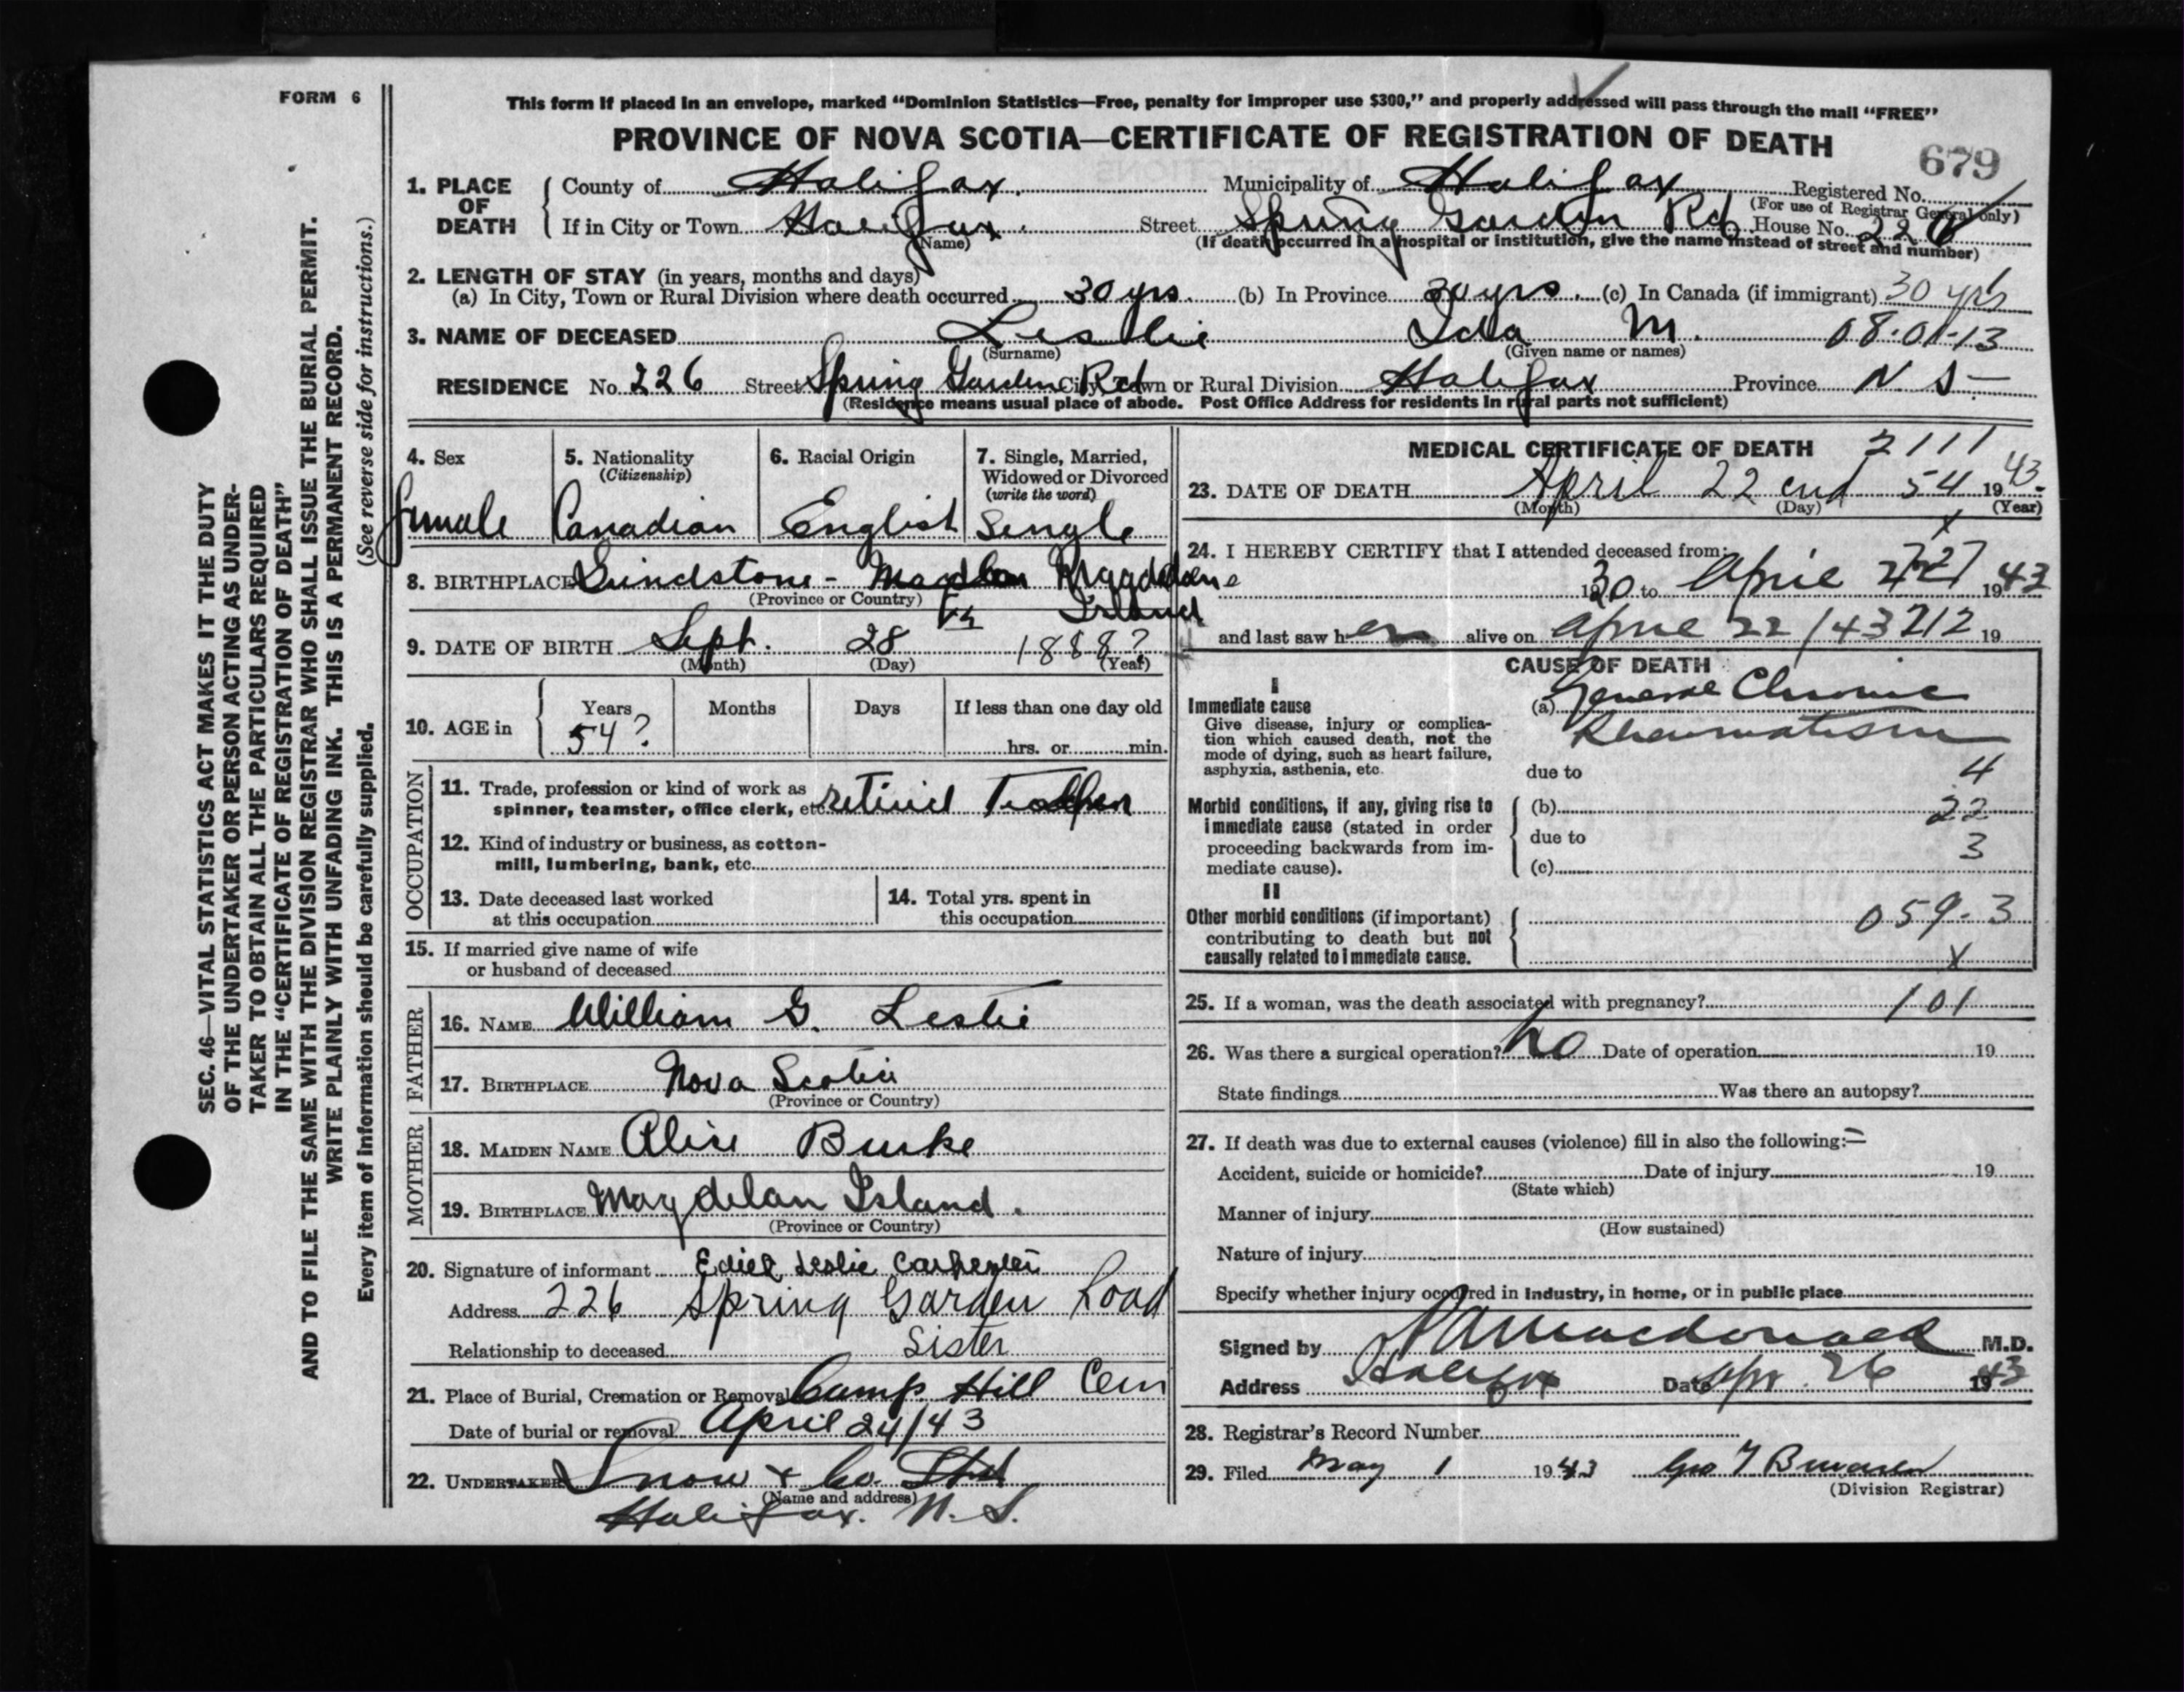 FORM 6
This form if placed in an envelope, marked "Dominion Statistics—Free, penalty for improper use $300," and properly addressed will pass through the mail "FREE"
PROVINCE OF NOVA SCOTIA—CERTIFICATE OF REGISTRATION OF DEATH
679
1. PLACE OF DEATH County of Halifax. Municipality of Halifax Registered No.
(For use of Registrar General only)
If in City or Town Halifax. Street Spring Garden Rd House No. 226
(Name) (If death occurred in a hospital or institution, give the name instead of street and number)
2. LENGTH OF STAY (in years, months and days)
(a) In City, Town or Rural Division where death occurred 30 yrs. (b) In Province 30 yrs. (c) In Canada (if immigrant) 30 yrs
3. NAME OF DECEASED Leslie Ida M. 08-01-13
(Surname) (Given name or names)
RESIDENCE No. 226 Street Spring Garden Rd City, Town or Rural Division Halifax Province N S
(Residence means usual place of abode. Post Office Address for residents in rural parts not sufficient)
4. Sex 5. Nationality 6. Racial Origin 7. Single, Married,
(Citizenship) Widowed or Divorced
(write the word)
female Canadian English Single
8. BIRTHPLACE Grindstone - Magdalene
(Province or Country) Island
9. DATE OF BIRTH Sept. 28 1888?
(Month) (Day) (Year)
10. AGE in Years Months Days If less than one day old
54? hrs. or min.
OCCUPATION
11. Trade, profession or kind of work as
spinner, teamster, office clerk, etc. retired
12. Kind of industry or business, as cotton-
mill, lumbering, bank, etc.
13. Date deceased last worked 14. Total yrs. spent in
at this occupation this occupation
15. If married give name of wife
or husband of deceased
FATHER
16. NAME William G. Leslie
17. BIRTHPLACE Nova Scotia
(Province or Country)
MOTHER
18. MAIDEN NAME Alice Burke
19. BIRTHPLACE Magdelan Island.
(Province or Country)
20. Signature of informant Leslie Carpenter
Address 226 Spring Garden Road
Relationship to deceased Sister
21. Place of Burial, Cremation or Removal Camp Hill Cem
Date of burial or removal April 24/43
22. UNDERTAKER Snow & Co. Ltd
(Name and address)
Halifax. N.S.
MEDICAL CERTIFICATE OF DEATH 2111
23. DATE OF DEATH April 22 54 1943.
(Month) (Day) (Year)
x
24. I HEREBY CERTIFY that I attended deceased from:
1930 to April 22 1943
and last saw her alive on April 22/43 212 19
CAUSE OF DEATH
I
Immediate cause (a) General Chronic
Give disease, injury or complica-
tion which caused death, not the Rheumatism
mode of dying, such as heart failure,
asphyxia, asthenia, etc. due to 4
Morbid conditions, if any, giving rise to (b) 22
immediate cause (stated in order due to
proceeding backwards from im- 3
mediate cause). (c)
II
Other morbid conditions (if important) 059-3
contributing to death but not
causally related to immediate cause. x
25. If a woman, was the death associated with pregnancy? 101
26. Was there a surgical operation? no Date of operation 19
State findings Was there an autopsy?
27. If death was due to external causes (violence) fill in also the following:—
Accident, suicide or homicide? Date of injury 19
(State which)
Manner of injury
(How sustained)
Nature of injury
Specify whether injury occurred in industry, in home, or in public place
Signed by Macdonald M.D.
Address Halifax Date Apr. 26 1943
28. Registrar's Record Number
29. Filed May 1 1943 Geo
(Division Registrar)
SEC. 46—VITAL STATISTICS ACT MAKES IT THE DUTY
OF THE UNDERTAKER OR PERSON ACTING AS UNDER-
TAKER TO OBTAIN ALL THE PARTICULARS REQUIRED
IN THE "CERTIFICATE OF REGISTRATION OF DEATH"
AND TO FILE THE SAME WITH THE DIVISION REGISTRAR WHO SHALL ISSUE THE BURIAL PERMIT.
WRITE PLAINLY WITH UNFADING INK. THIS IS A PERMANENT RECORD.
Every item of information should be carefully supplied. (See reverse side for instructions.)